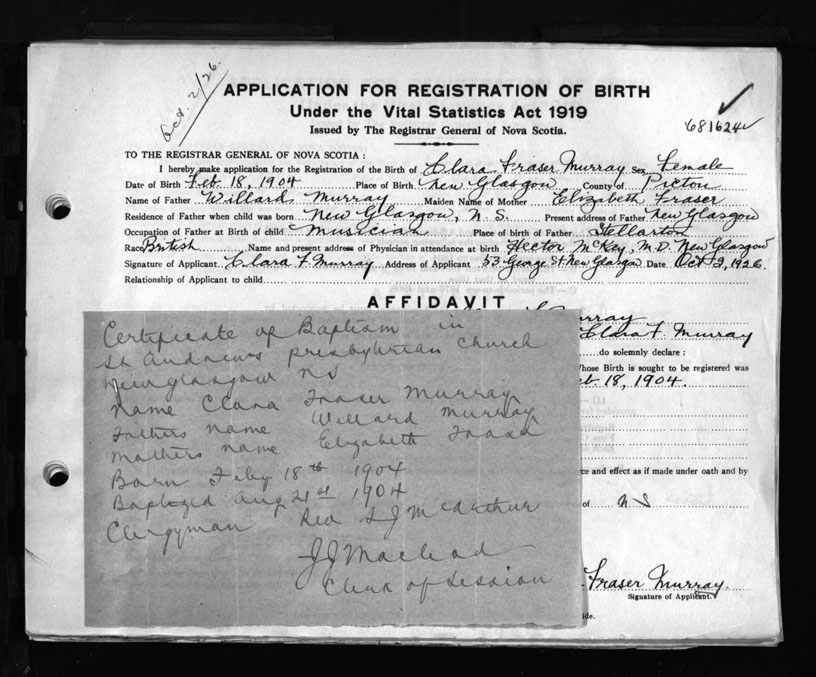 Oct. 2/26.
APPLICATION FOR REGISTRATION OF BIRTH
Under the Vital Statistics Act 1919
Issued by The Registrar General of Nova Scotia.
681624
TO THE REGISTRAR GENERAL OF NOVA SCOTIA :
I hereby make application for the Registration of the Birth of Clara Fraser Murray Sex Female
Date of Birth Feb. 18, 1904 Place of Birth New Glasgow County of Pictou
Name of Father Willard Murray Maiden Name of Mother Elizabeth Fraser
Residence of Father when child was born New Glasgow, N.S. Present address of Father New Glasgow
Occupation of Father at Birth of child Musician Place of birth of Father Stellarton
Race British Name and present address of Physician in attendance at birth Hector McKey, M.D. New Glasgow
Signature of Applicant Clara F. Murray Address of Applicant 53 George St. New Glasgow Date Oct 2, 1926.
Relationship of Applicant to child
AFFIDAVIT
Murray
Clara F. Murray
do solemnly declare :
Whose Birth is sought to be registered was
eb 18, 1904.
ce and effect as if made under oath and by
of NS
Fraser Murray.
Signature of Applicant.
ide.
Certificate of Baptism in
St Andrews presbyterian church
Newglasgow NS
Name Clara Fraser Murray
Fathers name Willard Murray
Mothers name Elizabeth
Born Feby 18th 1904
Baptized Aug 21st 1904
Clergyman Rev McArthur
J J Macleod
Clerk of Session